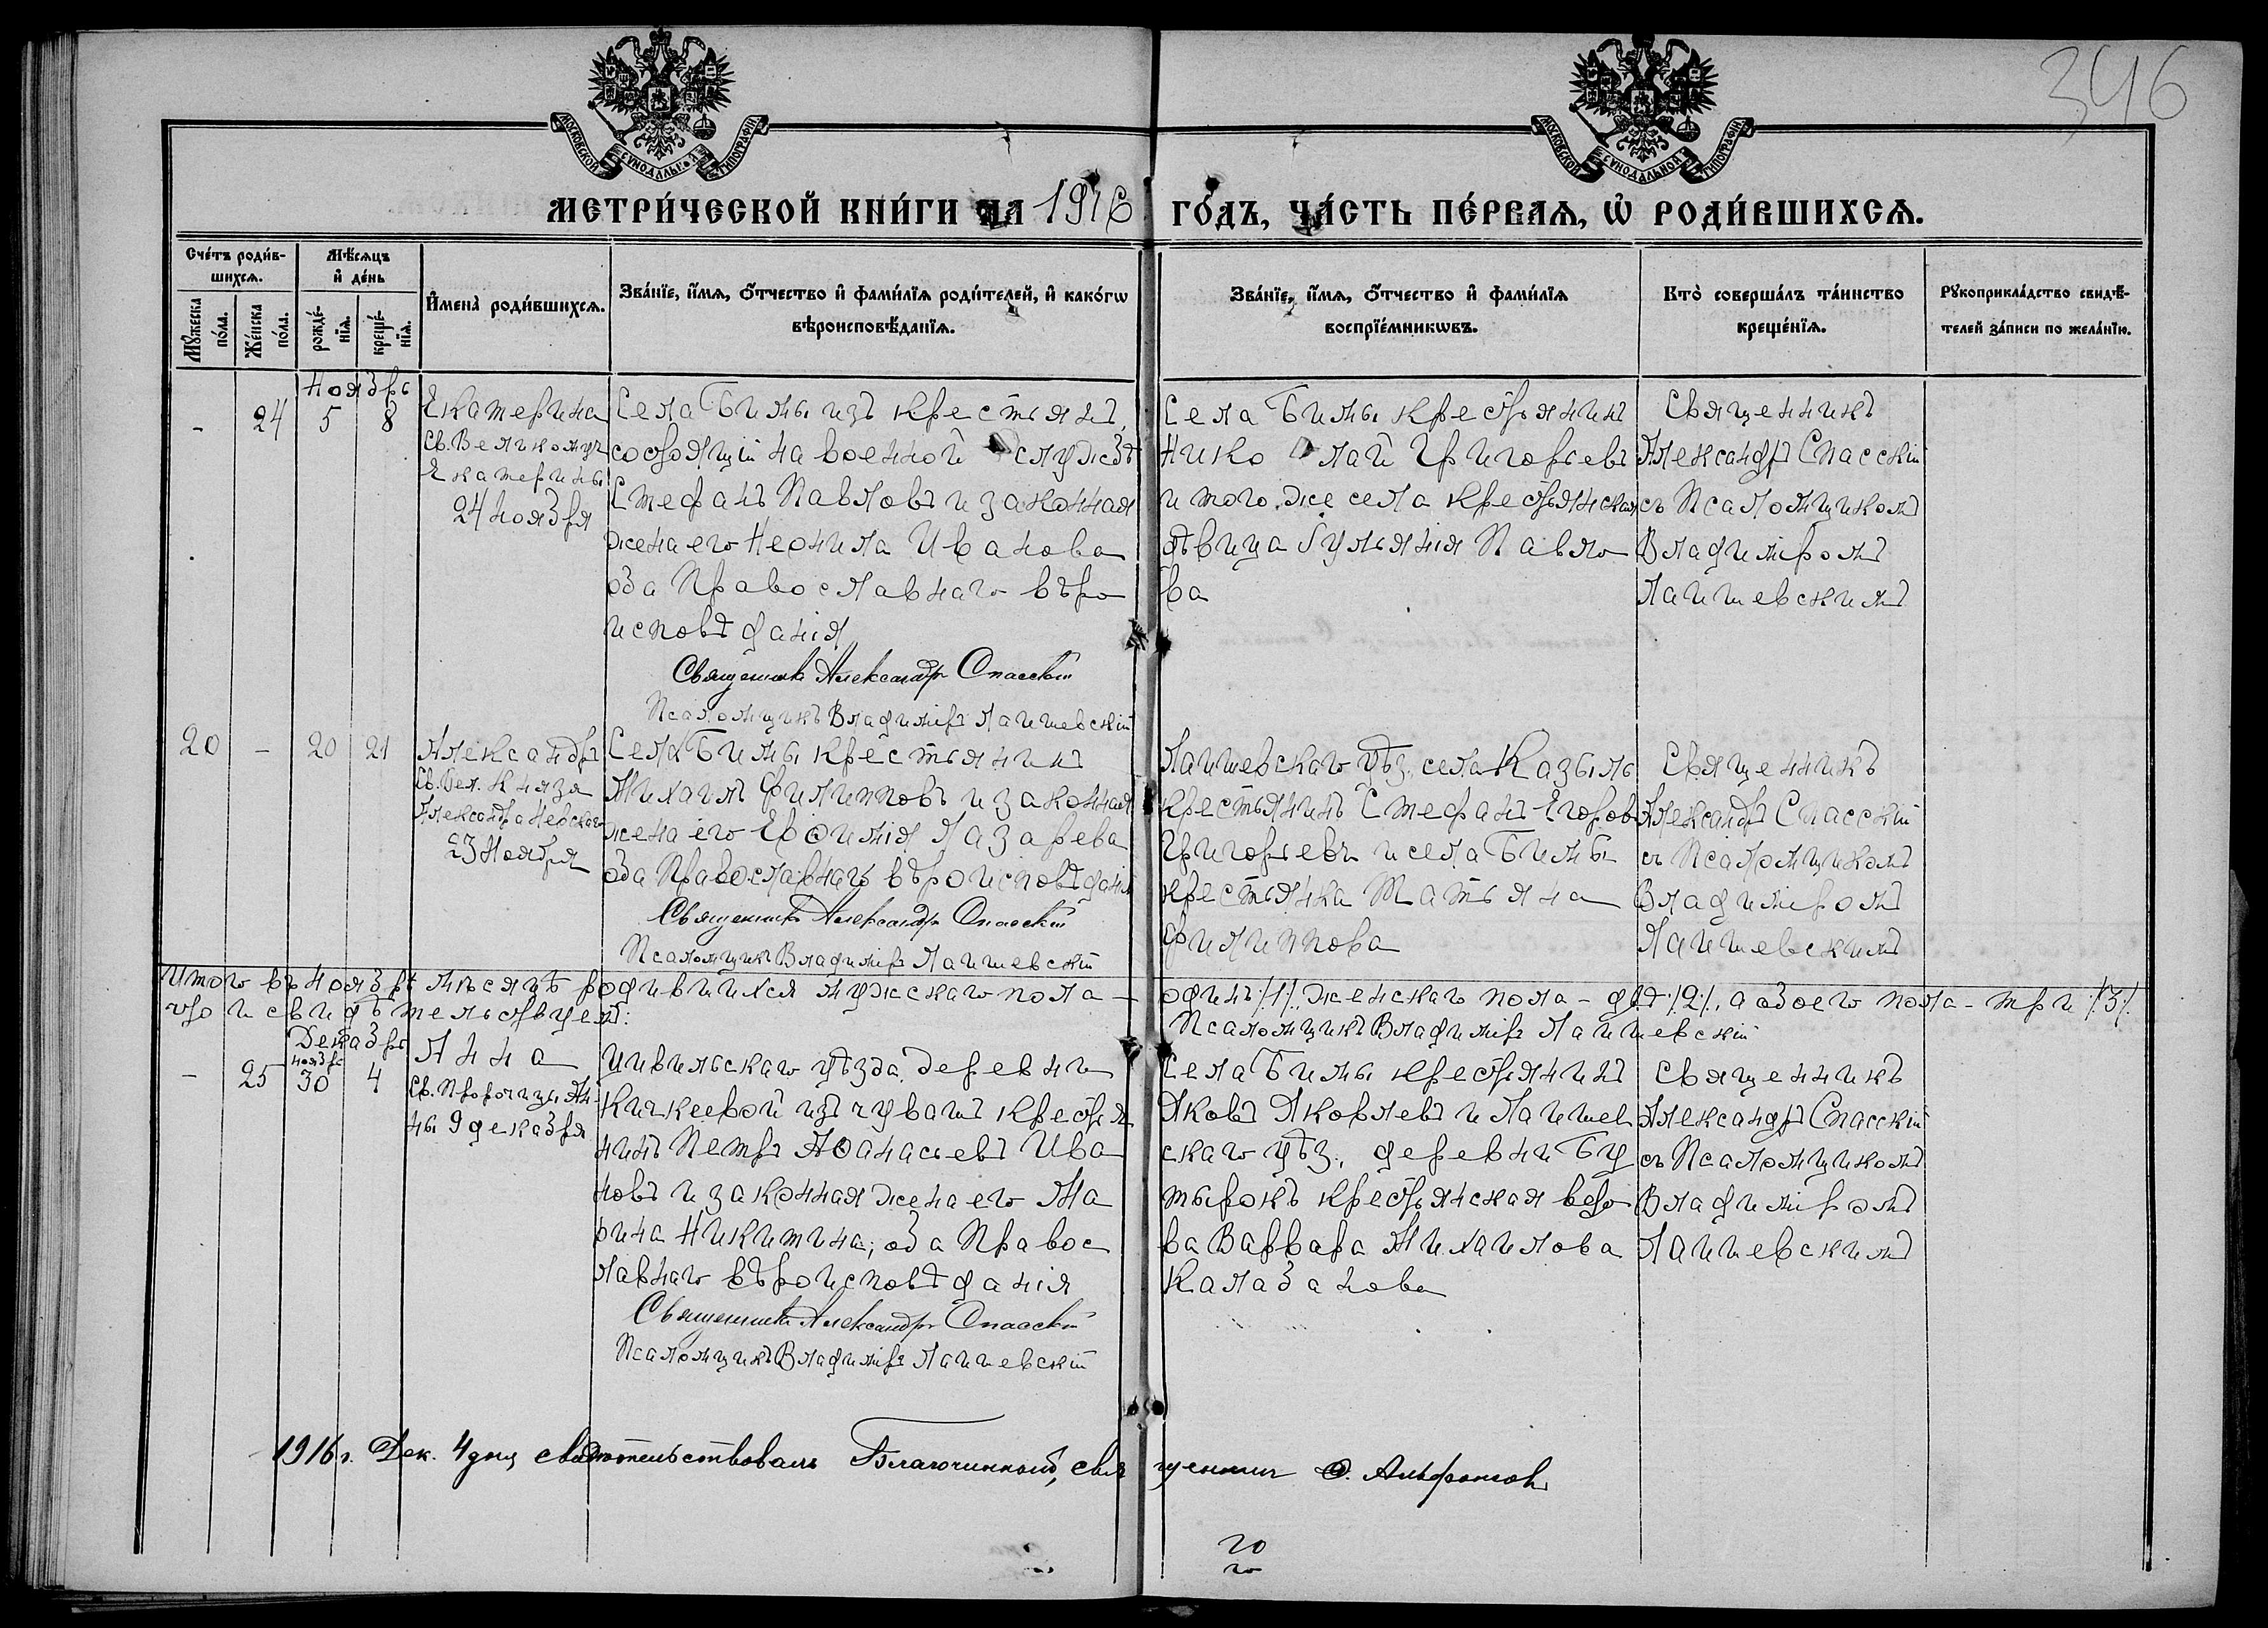 346
МОСКОВСКОЙ СѴНОДАЛЬНОЙ ТИПОГРАФІИ
МОСКОВСКОЙ СѴНОДАЛЬНОЙ ТИПОГРАФІИ
МЕТРИ́ЧЕСКОЙ КНИ́ГИ НА 1916 ГО́ДЪ, ЧА́СТЬ ПЕ́РВАЯ, Ѡ҆ РОДИ́ВШИХСЯ.
Сче́тъ роди́в-
шихсѧ.
Мꙋ́жеска
по́ла.
Же́нска
по́ла.
Мѣ́сѧцъ
и҆ де́нь
рожде́-
нїѧ.
креще́-
нїѧ.
И҆мена̀ роди́вшихсѧ.
Зва́нїе, и҆́мѧ, ѻ҆́тчество и҆ фами́лїѧ роди́телей, и҆ како́гѡ
вѣроисповѣ́данїѧ.
Зва́нїе, и҆́мѧ, ѻ҆́тчество и҆ фами́лїѧ
воспрїе́мникѡвъ.
Кто̀ соверша́лъ та́инство
креще́нїѧ.
Рꙋкоприкла́дство свидѣ́-
телей за́писи по жела́нїю.
Ноябрь
- 24 5 8
Екатерина
Св. Великомуч
Екатерины
24 ноября
Села Бимы изъ крестьянъ,
состоящій на военной службѣ
Стефанъ Павловъ и законная
жена его Неонила Иванова
оба Православнаго вѣро
исповѣданія
Священникъ Александръ Спасскій
Псаломщикъ Владиміръ Лаишевскій
Села Бимы крестьянинъ
Николай Григорьевъ
и того же села крестьянская
дѣвица Гульянія Павло
ва
Священникъ
Александръ Спасскій
съ Псаломщикомъ
Владиміромъ
Лаишевскимъ
20 - 20 21
Александръ
Св. Вел. Князя
Александра Невскаго
23 Ноября
Села Бимы крестьянинъ
Михаилъ Филипповъ и законная
жена его Евѳимія Лазарева
оба Православнаго вѣроисповѣданія
Священникъ Александръ Спасскій
Псаломщикъ Владиміръ Лаишевскій
Лаишевскаго уѣз. села Казыль
крестьянинъ Стефанъ Егоровъ
Григорьевъ и села Бимы
крестьянка Татьяна
Филиппова
Священникъ
Александръ Спасскій
съ Псаломщикомъ
Владиміромъ
Лаишевскимъ
Итого въ ноябрѣ мѣсяцѣ родившихся мужскаго пола - одинъ /1/, женскаго пола - двѣ /2/, а обоего пола - три /3/.
что и свидѣтельствуемъ:
Псаломщикъ Владиміръ Лаишевскій
Декабрь
ноябрь
- 25 30 4
Анна
Св. Пророчицы Ан-
ны 9 декабря
Цивильскаго уѣзда деревни
Кичкеевой изъ чувашъ крестья
нинъ Петръ Аѳанасьевъ Ива
новъ и законная жена его Ма
рина Никитина; оба Правос
лавнаго вѣроисповѣданія
Священникъ Александръ Спасскій
Псаломщикъ Владиміръ Лаишевскій
Села Бимы крестьянинъ
Яковъ Яковлевъ и Лаишев
скаго уѣз. деревни Бу
тырокъ крестьянская вдо
ва Варвара Михаилова
Калабанова
Священникъ
Александръ Спасскій
съ Псаломщикомъ
Владиміромъ
Лаишевскимъ
1916 г. Дек. 4 дня свидѣтельствовалъ Благочинный, священникъ Ѳ. Альфонсовъ
го
го